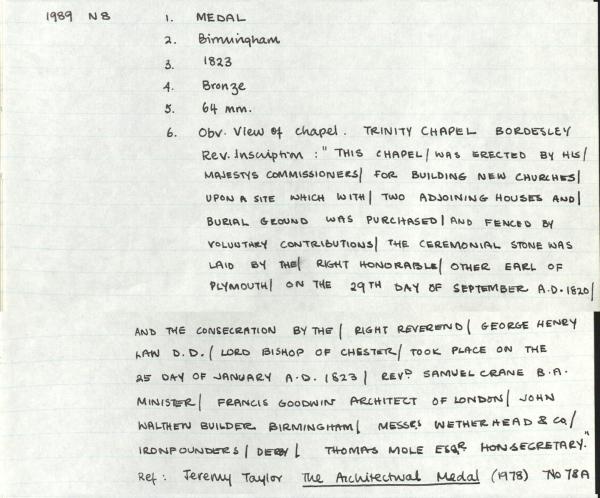 1989 N8 1. MEDAL
2. Birmingham
3. 1823
4. Bronze
5. 64 mm.
6. Obv. View of chapel. TRINITY CHAPEL BORDESLEY
Rev. Inscription : "THIS CHAPEL/ WAS ERECTED BY HIS/
MAJESTYS COMMISSIONERS/ FOR BUILDING NEW CHURCHES/
UPON A SITE WHICH WITH/ TWO ADJOINING HOUSES AND/
BURIAL GROUND WAS PURCHASED/ AND FENCED BY
VOLUNTARY CONTRIBUTIONS/ THE CEREMONIAL STONE WAS
LAID BY THE/ RIGHT HONORABLE/ OTHER EARL OF
PLYMOUTH/ ON THE 29TH DAY OF SEPTEMBER A.D. 1820/
AND THE CONSECRATION BY THE/ RIGHT REVEREND/ GEORGE HENRY
LAW D.D./ LORD BISHOP OF CHESTER/ TOOK PLACE ON THE
25 DAY OF JANUARY A.D. 1823/ REVD. SAMUEL CRANE B.A.
MINISTER/ FRANCIS GOODWIN ARCHITECT OF LONDON/ JOHN
WALTHEN BUILDER BIRMINGHAM/ MESSRS WETHERHEAD & CO/
IRONFOUNDERS/ DERBY/ THOMAS MOLE ESQR. HON SECRETARY."
Ref : Jeremy Taylor The Architectural Medal (1978) No 78A